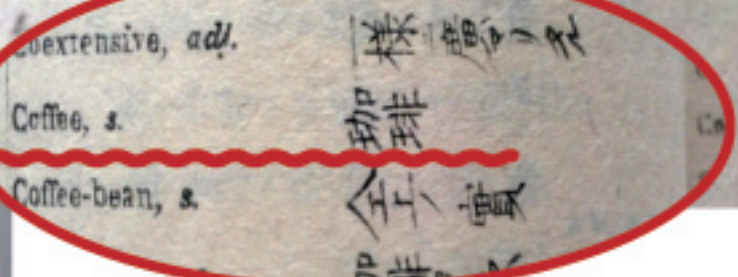 Coextensive, adj. 一樣
Coffee, s. 珈琲
Coffee-bean, s. 仝上ノ實
珈琲